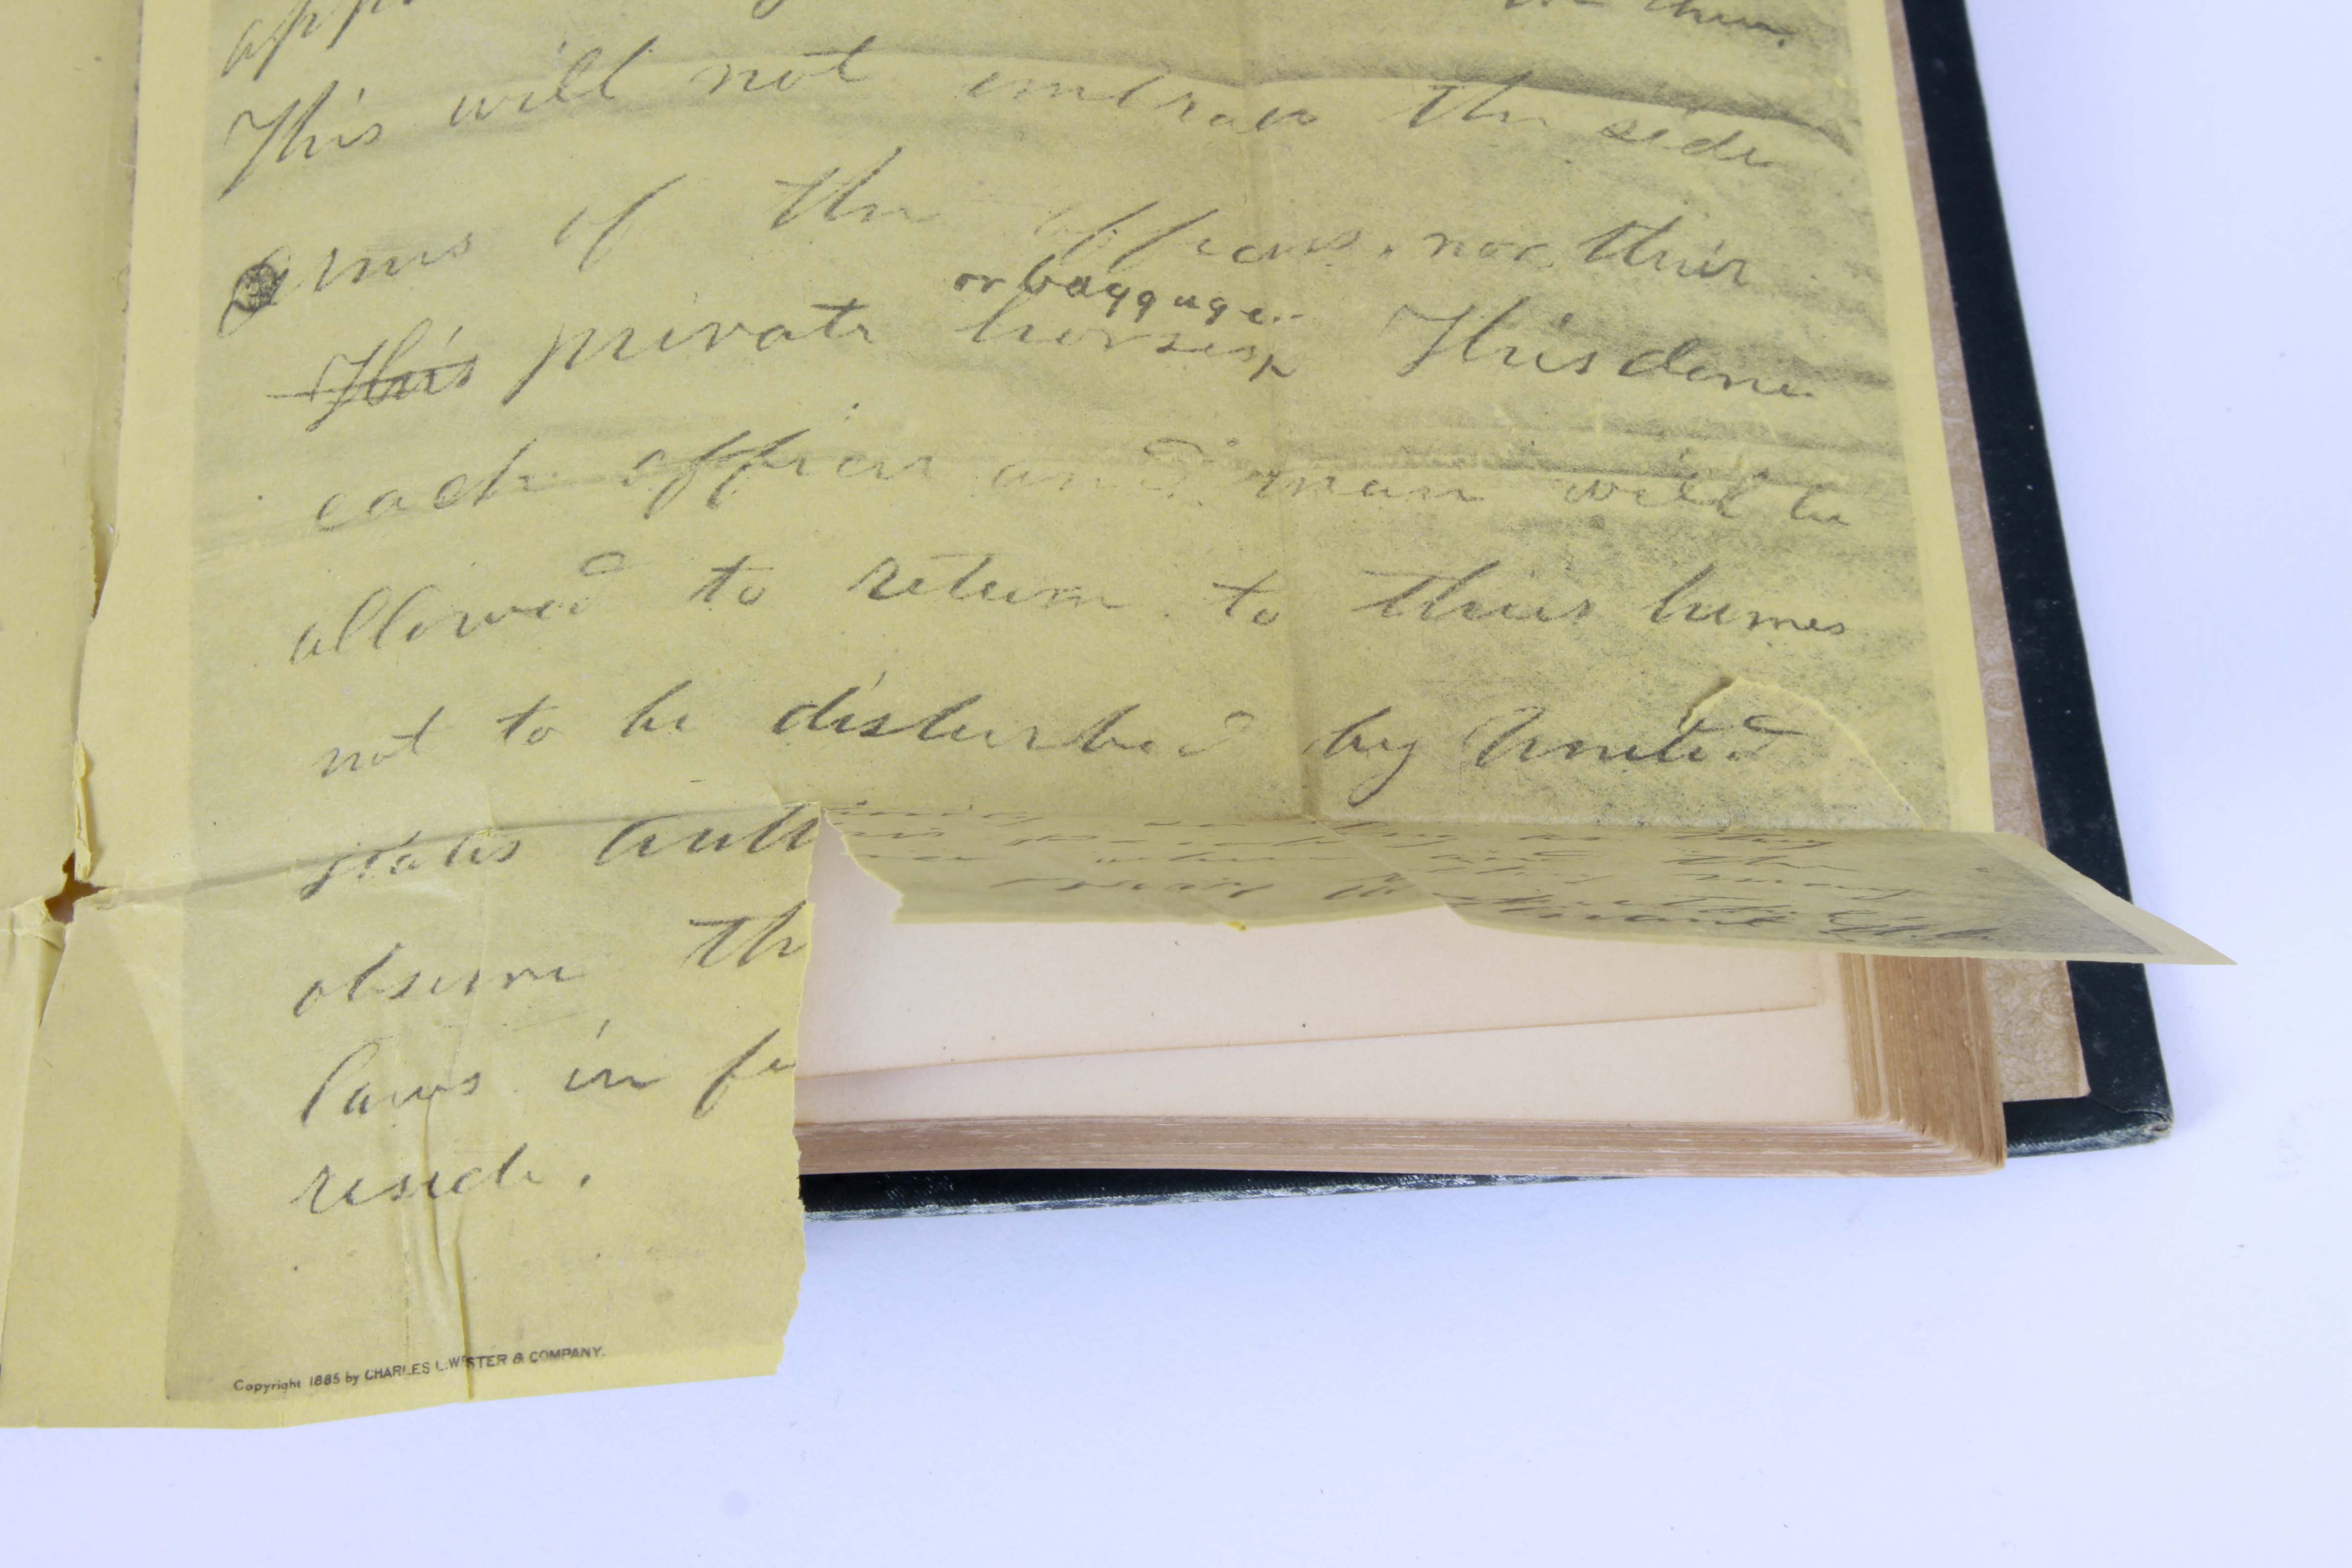 This will not embrace the side
arms of the officers, nor their
or baggage
This private horses This done
each officer and man will be
allowed to return to their homes
not to be disturbed by United
States Auth
observe th
laws in fo
reside.
Copyright 1885 by CHARLES L. WEBSTER & COMPANY.